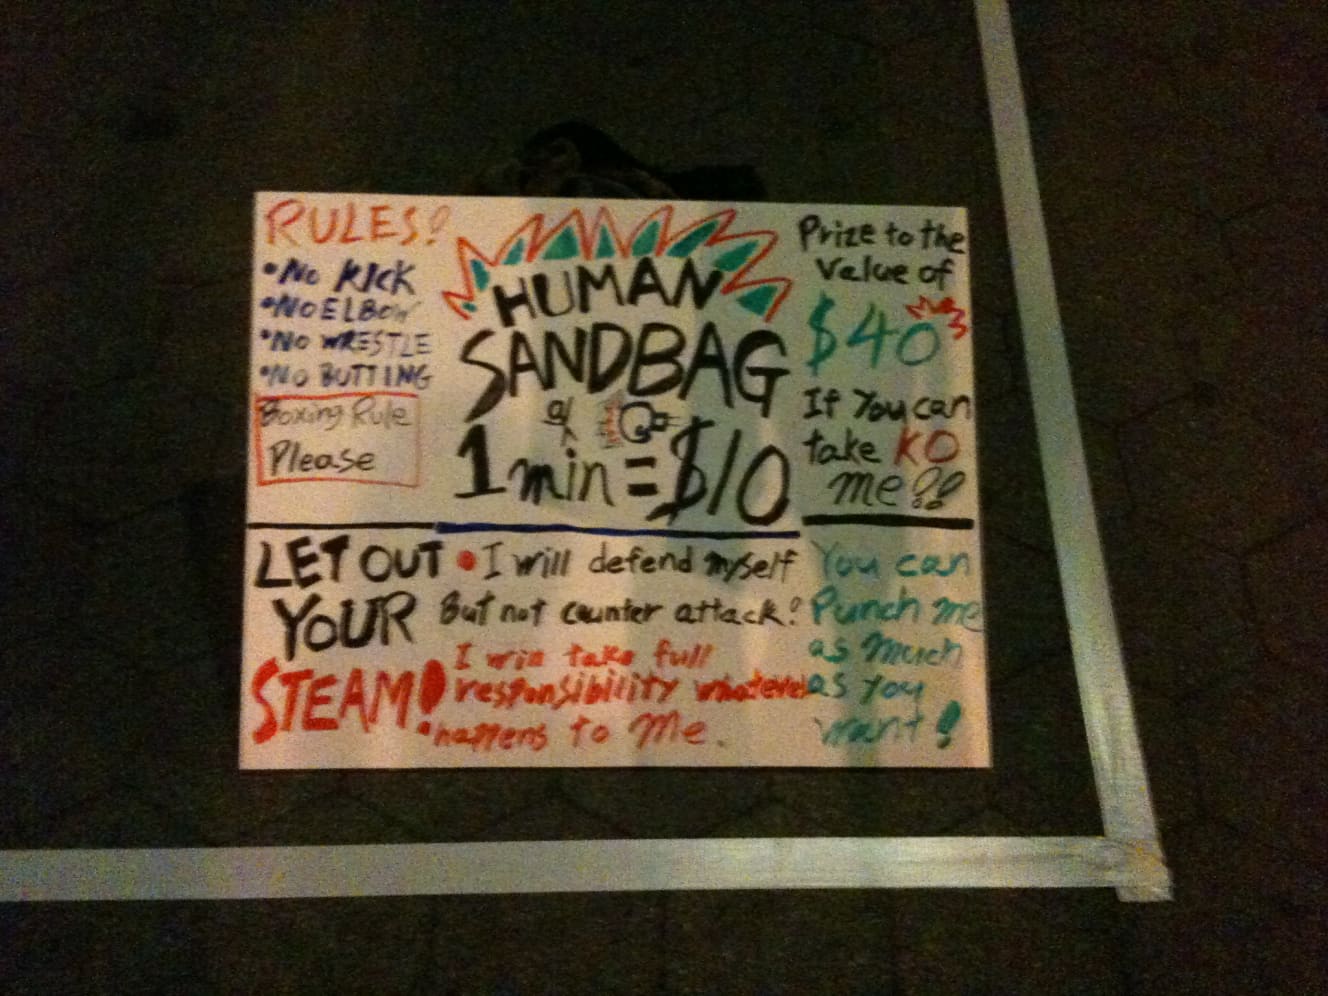 RULES!
•No KICK
•NO ELBOW
•NO WRESTLE
•NO BUTTING
Boxing Rule
Please
HUMAN
SANDBAG
1 min = $10
Prize to the
Value of
$40
If You can
take KO
me!!
LET OUT
YOUR
STEAM!
• I will defend myself
But not counter attack!
I will take full
responsibility whatever
happens to Me.
You can
Punch me
as much
as you
want!